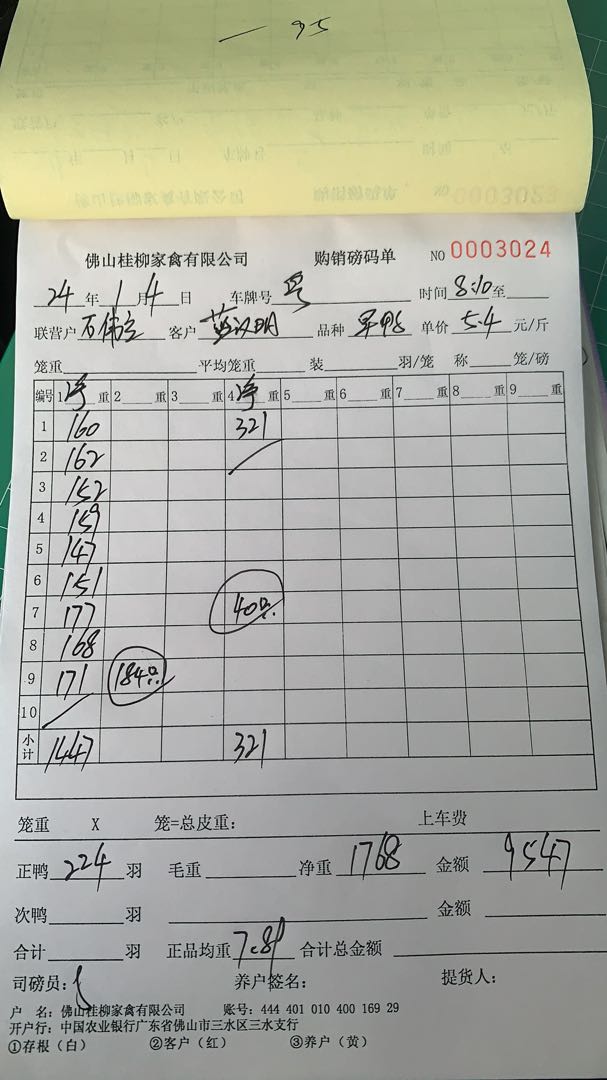 一 95
佛山桂柳家禽有限公司 购销磅码单 NO 0003024
24 年 1 月 4 日 车牌号 时间 8:10 至
联营户 客户 蓝汉明 品种 单价 5.4 元/斤
笼重 平均笼重 装 羽/笼 称 笼/磅
编号 1 净 重 2 重 3 重 4 净 重 5 重 6 重 7 重 8 重 9 重
1 160 321
2 162
3 152
4 159
5 147
6 151
7 177 40只
8 168
9 171 184只
10
小计 1447 321
笼重 X 笼=总皮重: 上车费
正鸭 224 羽 毛重 净重 1768 金额 9547
次鸭 羽 金额
合计 羽 正品均重 7.89 合计总金额
司磅员: 养户签名: 提货人:
户 名: 佛山桂柳家禽有限公司 账号: 444 401 010 400 169 29
开户行: 中国农业银行广东省佛山市三水区三水支行
①存根(白) ②客户(红) ③养户(黄)